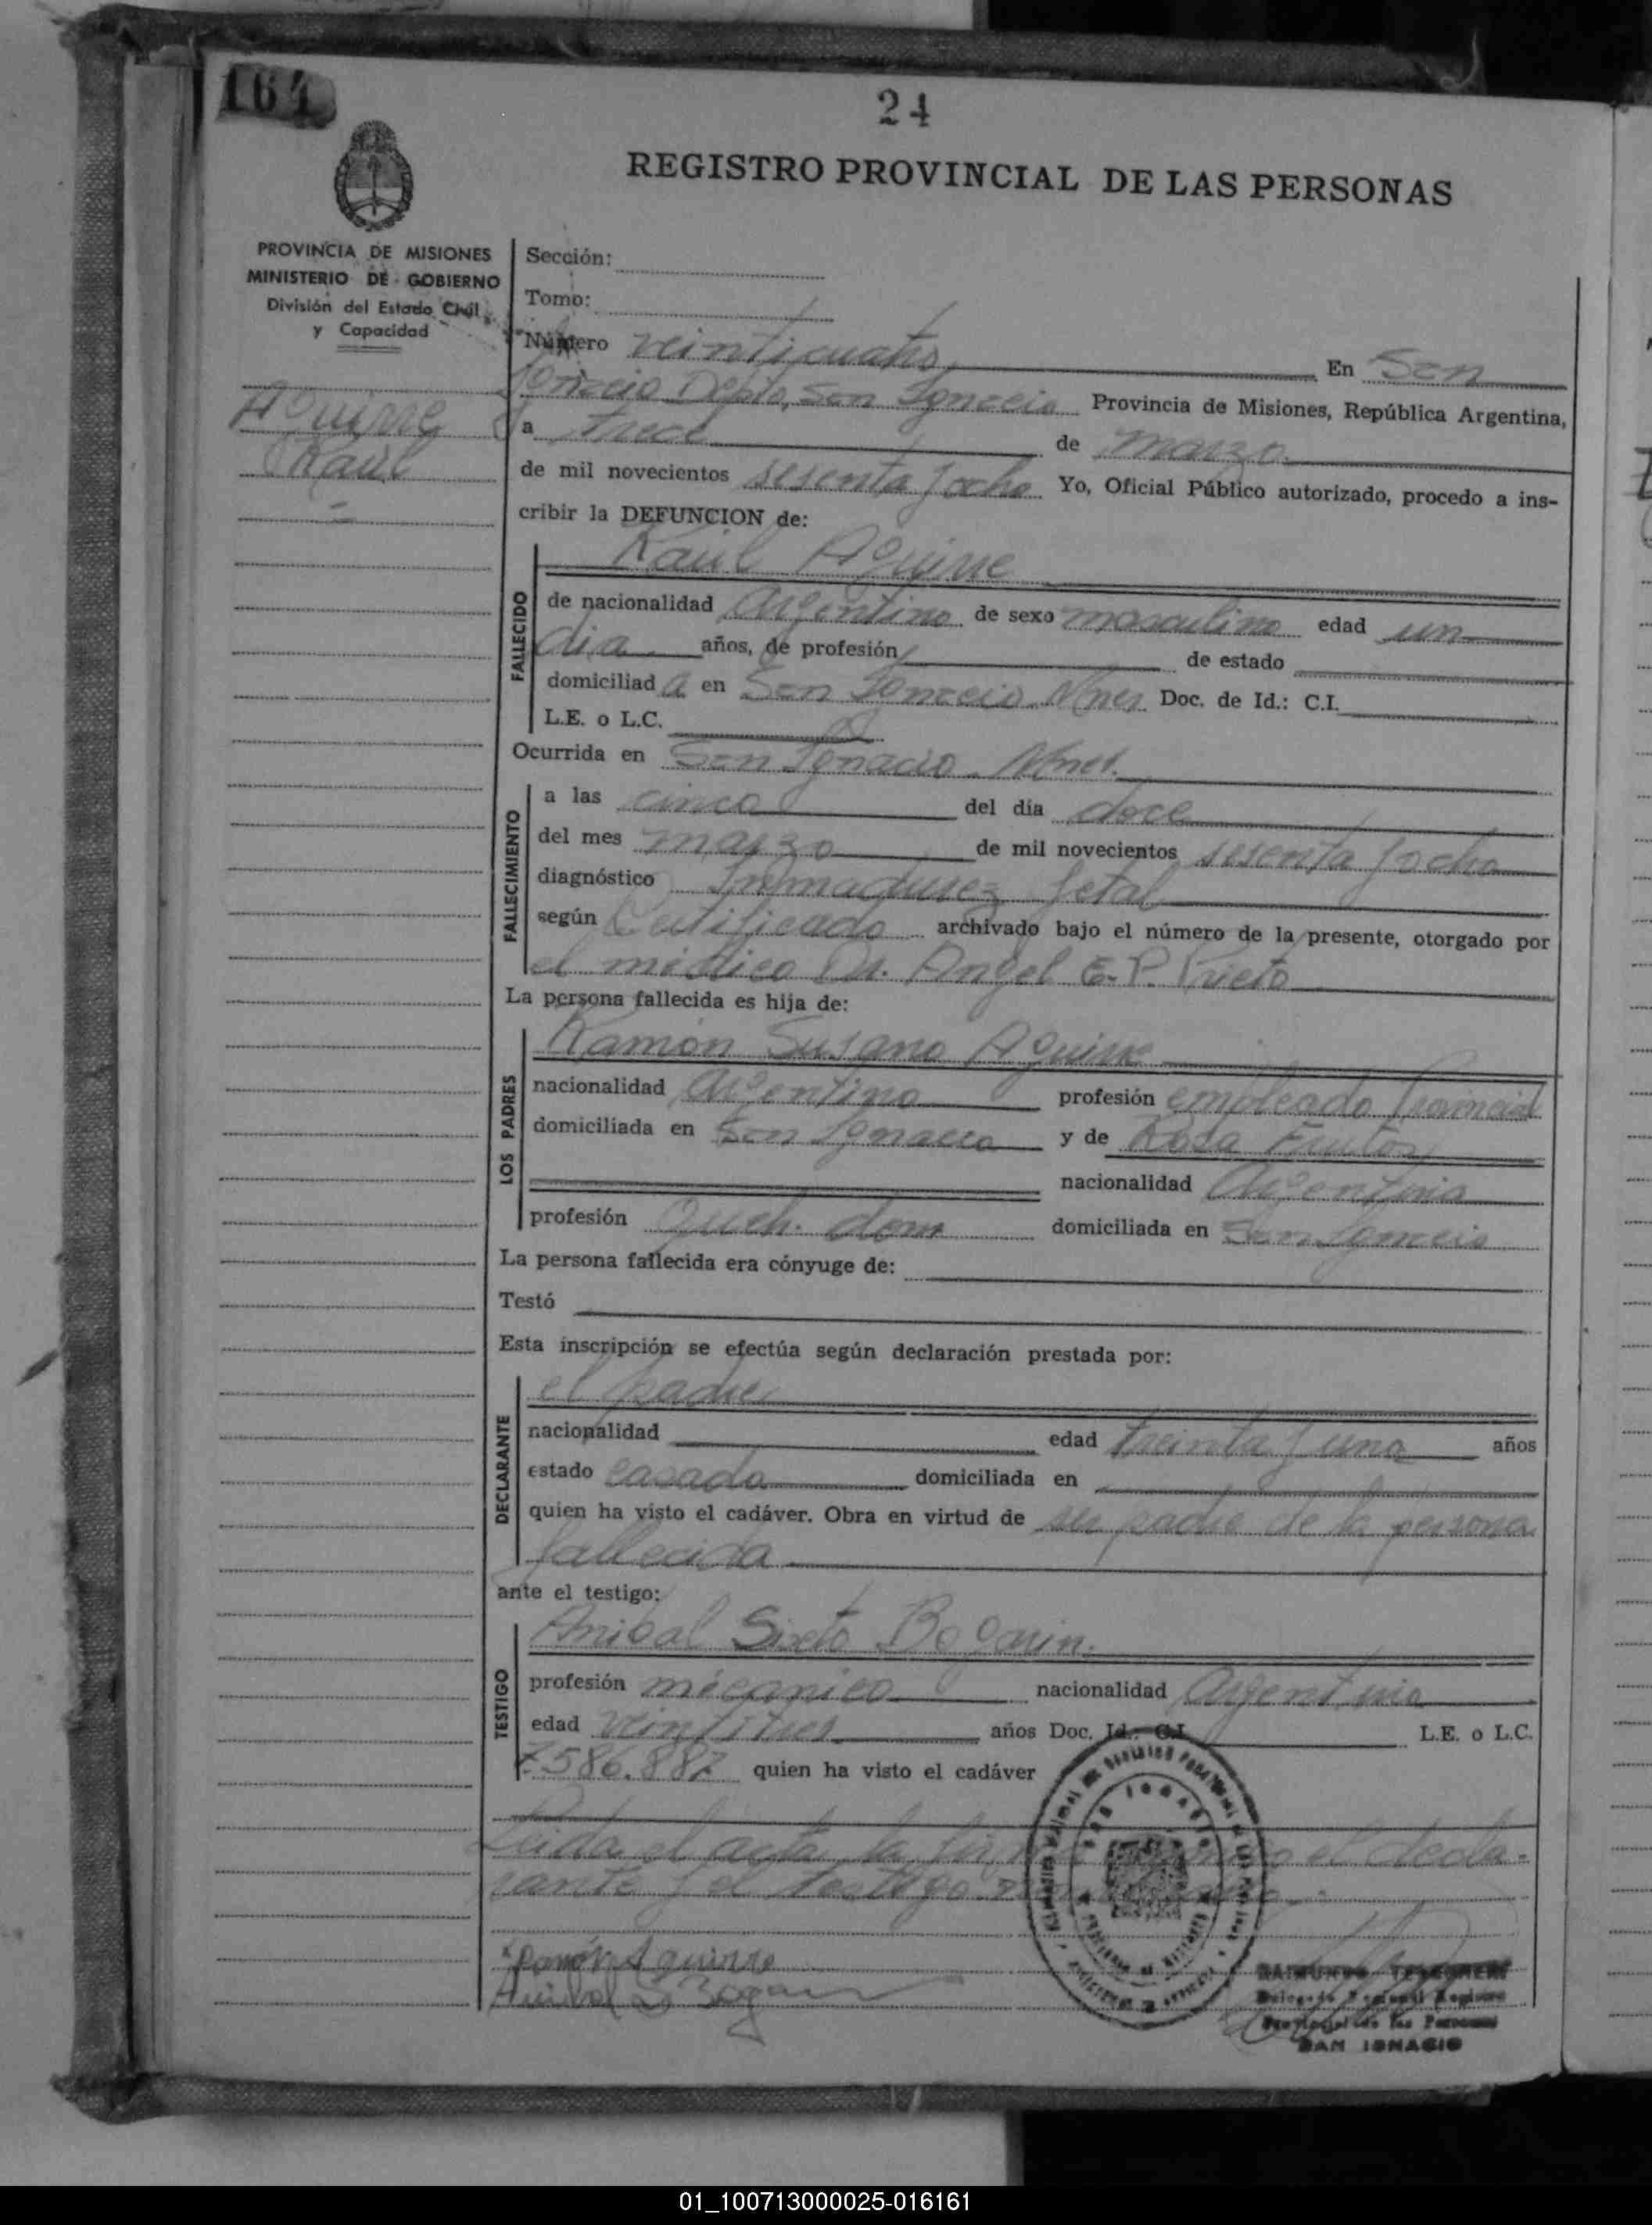 164
24
REGISTRO PROVINCIAL DE LAS PERSONAS
PROVINCIA DE MISIONES
MINISTERIO DE GOBIERNO
División del Estado Civil
y Capacidad
Aguirre
Raúl
Sección:
Tomo:
Número veinticuatro En San
Ignacio Depto. San Ignacio Provincia de Misiones, República Argentina,
a trece de marzo
de mil novecientos sesenta y ocho Yo, Oficial Público autorizado, procedo a ins-
cribir la DEFUNCION de:
Raúl Aguirre
FALLECIDO
de nacionalidad Argentino de sexo masculino edad un
dia años, de profesión de estado
domiciliad a en San Ignacio Mnes Doc. de Id.: C.I.
L.E. o L.C.
Ocurrida en San Ignacio Mnes.
FALLECIMIENTO
a las cinco del día doce
del mes marzo de mil novecientos sesenta y ocho
diagnóstico Inmadurez fetal
según Certificado archivado bajo el número de la presente, otorgado por
el médico Dr. Angel E. P. Prieto
La persona fallecida es hija de:
LOS PADRES
Ramón Susano Aguirre
nacionalidad Argentino profesión empleado Provincial
domiciliada en San Ignacio y de Rosa Frutos
nacionalidad Argentina
profesión Queh. dom domiciliada en San Ignacio
La persona fallecida era cónyuge de:
Testó
Esta inscripción se efectúa según declaración prestada por:
DECLARANTE
el padre
nacionalidad edad treinta y uno años
estado casado domiciliada en
quien ha visto el cadáver. Obra en virtud de ser padre de la persona
fallecida
ante el testigo:
TESTIGO
Anibal Sixto Bogarin.
profesión mécanico nacionalidad Argentina
edad veintitres años Doc. Id.: C.I. L.E. o L.C.
7.586.887 quien ha visto el cadáver
Leida el acta la el decla-
rante y el testigo
Ramón Aguirre
Anibal S Bogarin
RAIMUNDO
Delegado Regional Registro
Provincial de las Personas
SAN IGNACIO
01_100713000025-016161